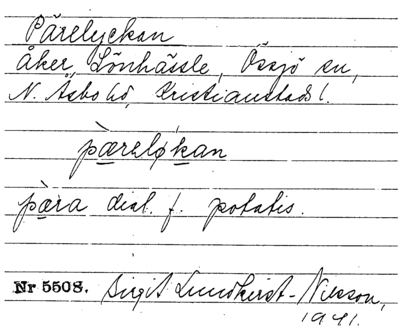 Pärelyckan
åker, Lönhässle, Össjö sn,
N. Åsbo hd, Kristianstads l.
pæ̀reløkan
pæ̀ra dial. f. potatis.
Nr 5508. Birgit Lundkvist-Nilsson,
1941.